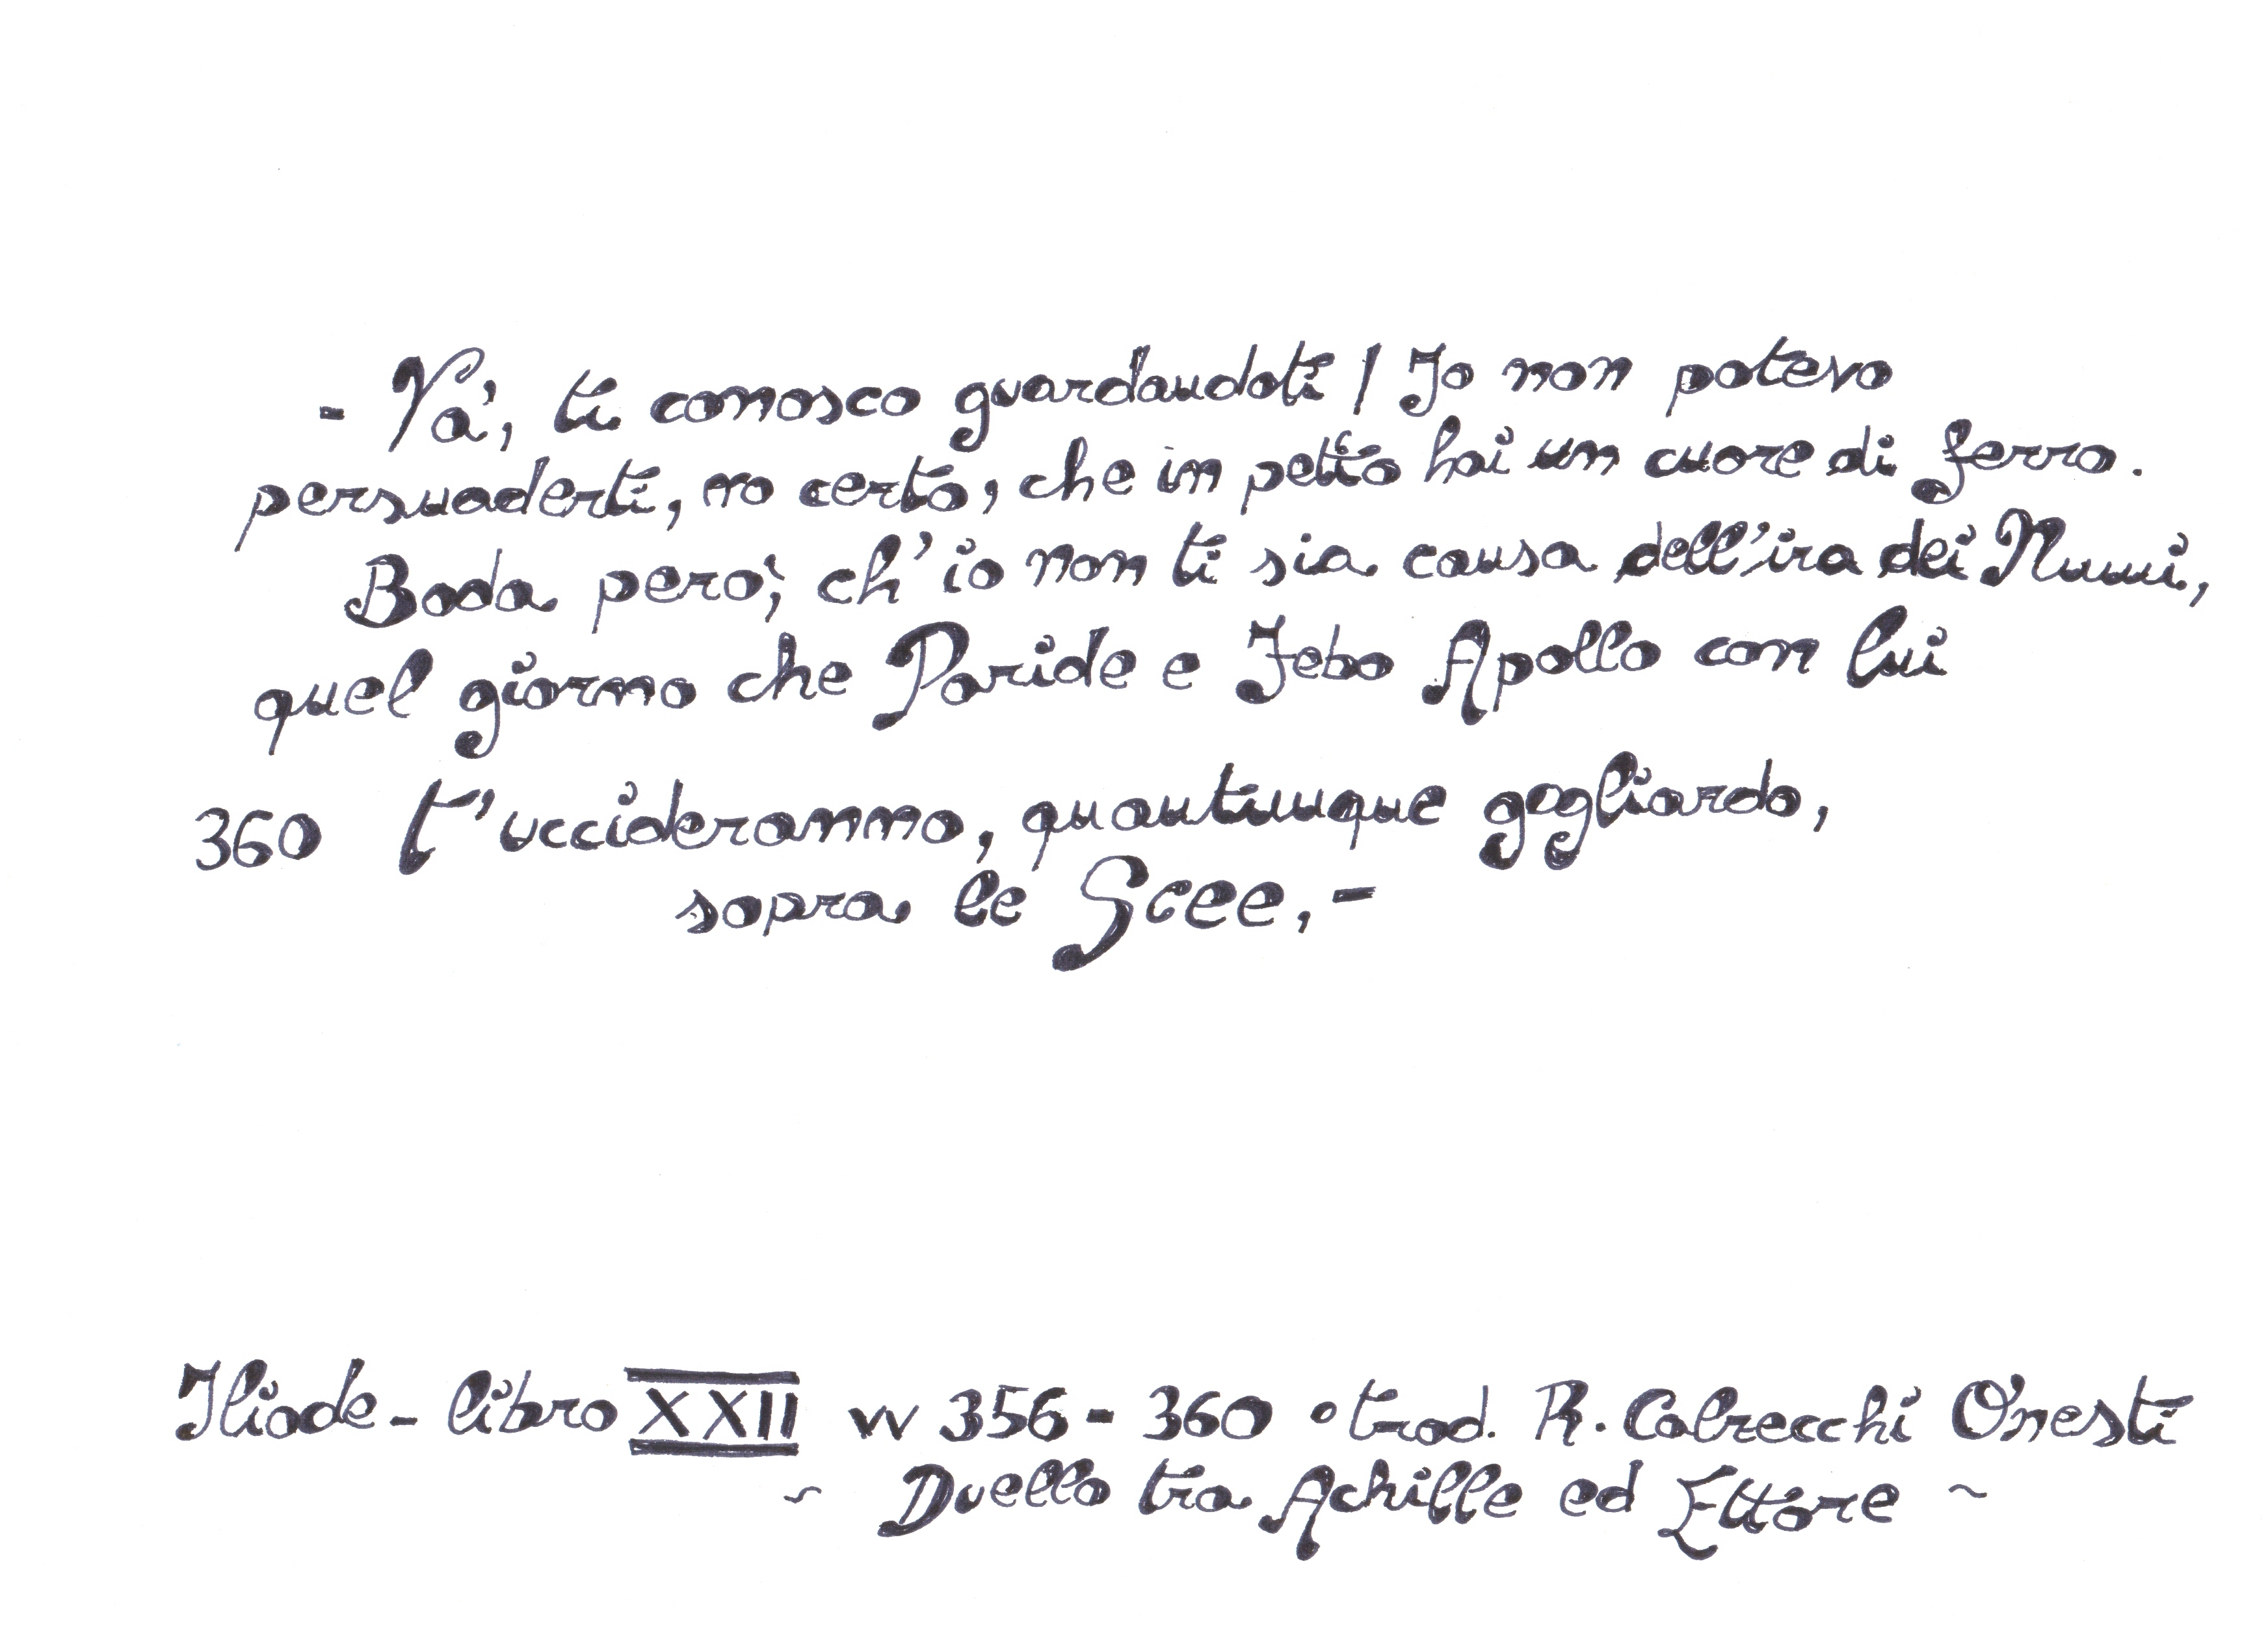 - Va', ti conosco guardandoti! Io non potevo
persuaderti, no certo, che in petto hai un cuore di ferro.
Bada però, ch'io non ti sia causa dell'ira dei Numi,
quel giorno che Paride e Febo Apollo con lui
360 t'uccideranno, quantunque gagliardo,
sopra le Scee.-
Iliade - libro XXII vv 356 - 360 ∘ trad. R. Calzecchi Onesti
~ Duello tra Achille ed Ettore ~